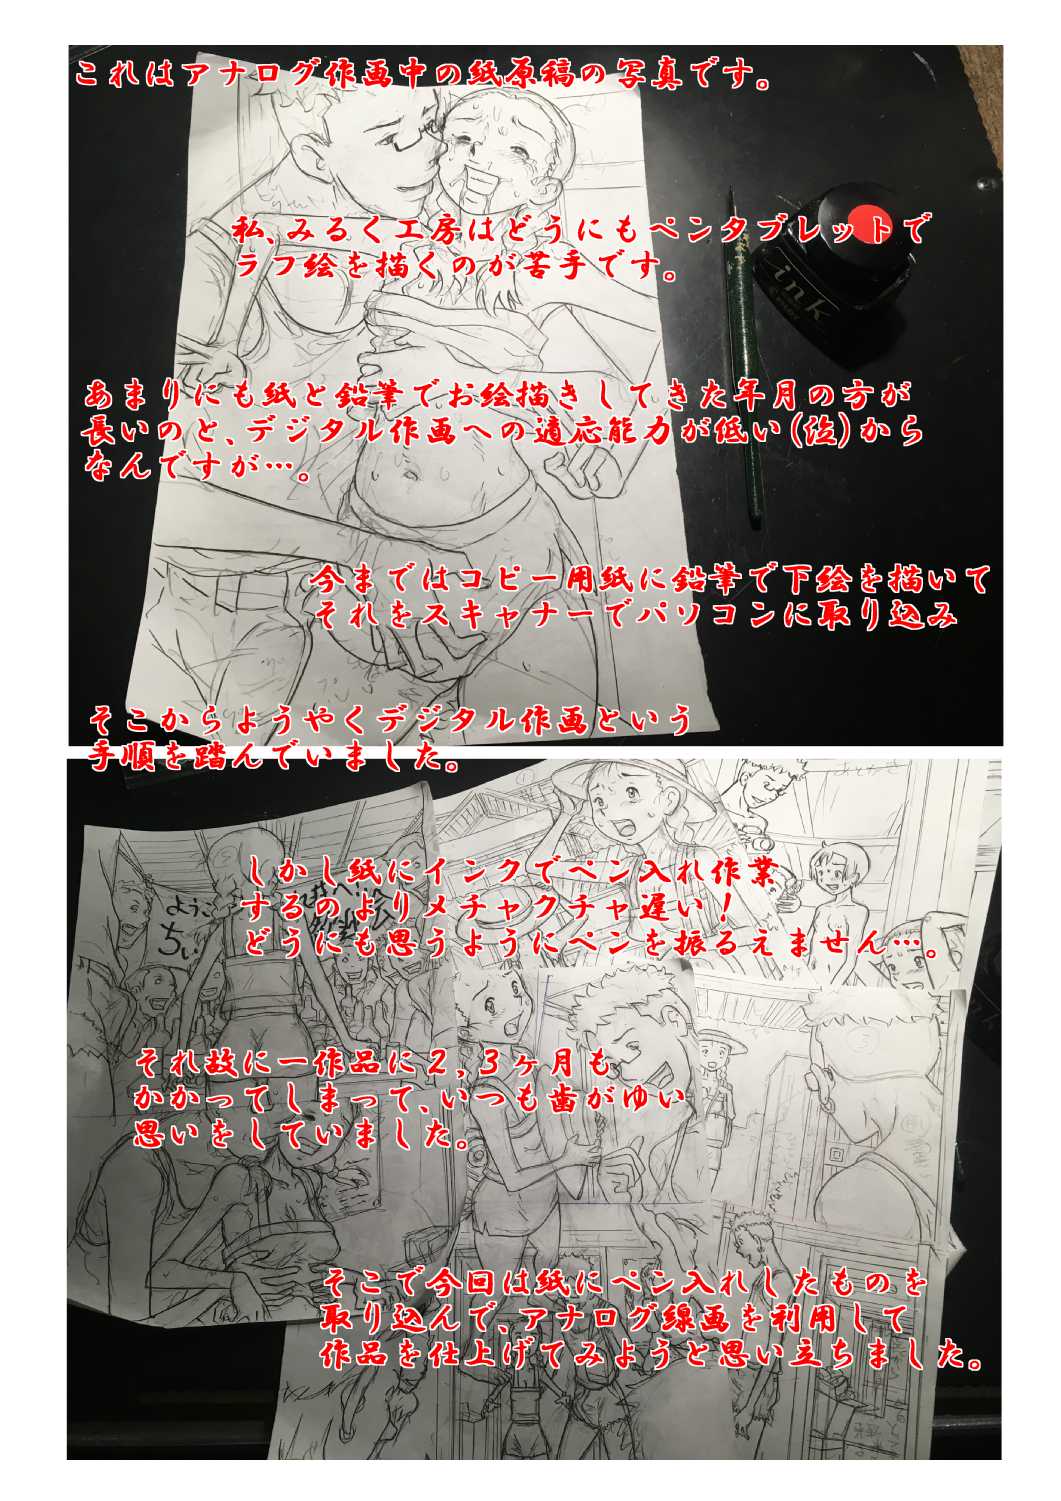 これはアナログ作画中の紙原稿の写真です。
私、みるく工房はどうにもペンタブレットで
ラフ絵を描くのが苦手です。
ink
あまりにも紙と鉛筆でお絵描きしてきた年月の方が
長いのと、デジタル作画への適応能力が低い(泣)から
なんですが…。
今まではコピー用紙に鉛筆で下絵を描いて
それをスキャナーでパソコンに取り込み
そこからようやくデジタル作画という
手順を踏んでいました。
あとがき
しかし紙にインクでペン入れ作業
するのよりメチャクチャ遅い!
どうにも思うようにペンを振るえません…。
ようこそ
それ故に一作品に2,3ヶ月も
かかってしまって、いつも歯がゆい
思いをしていました。
そこで今回は紙にペン入れしたものを
取り込んで、アナログ線画を利用して
作品を仕上げてみようと思い立ちました。